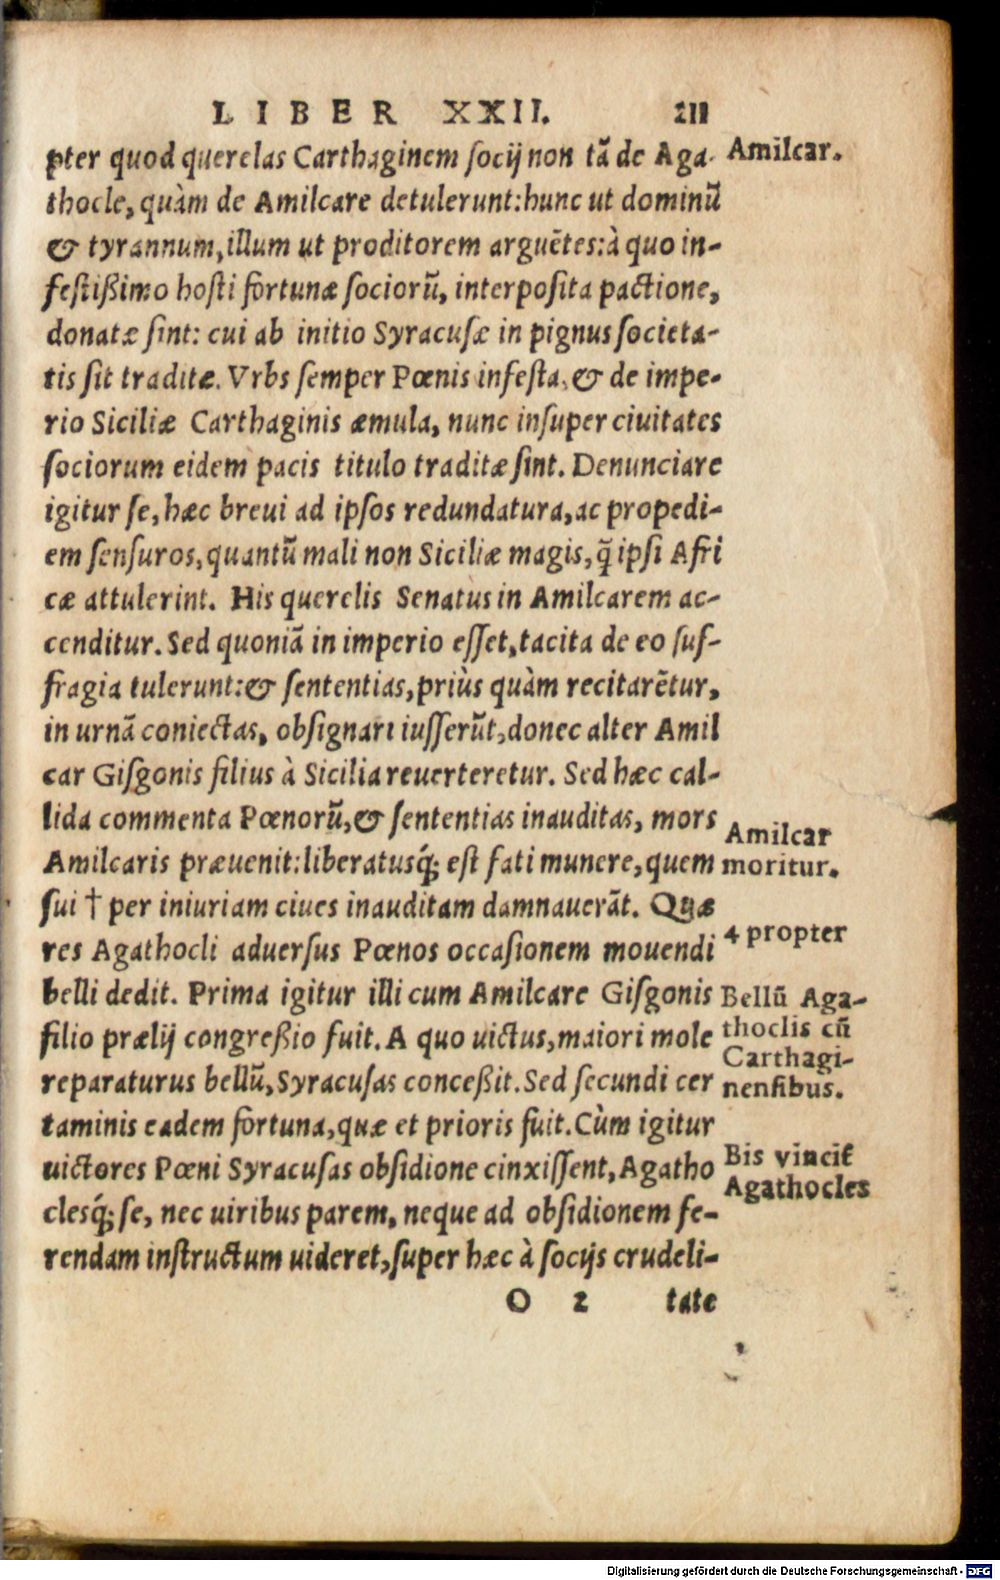 LIBER XXII. 211
pter quod querelas Carthaginem socij non tā de Aga- Amilcar.
thocle, quàm de Amilcare detulerunt: hunc ut dominū
& tyrannum, illum ut proditorem arguētes: à quo in-
festißimo hosti fortunæ sociorū, interposita pactione,
donatæ sint: cui ab initio Syracusæ in pignus societa-
tis sit traditæ. Vrbs semper Pœnis infesta, & de impe-
rio Siciliæ Carthaginis æmula, nunc insuper ciuitates
sociorum eidem pacis titulo traditæ sint. Denunciare
igitur se, hæc breui ad ipsos redundatura, ac propedi-
em sensuros, quantū mali non Siciliæ magis, q̃ ipsi Afri
cæ attulerint. His querelis Senatus in Amilcarem ac-
cenditur. Sed quoniā in imperio esset, tacita de eo suf-
fragia tulerunt: & sententias, priùs quàm recitarētur,
in urnā coniectas, obsignari iusserūt, donec alter Amil
car Gisgonis filius à Sicilia reuerteretur. Sed hæc cal-
lida commenta Pœnorū, & sententias inauditas, mors
Amilcar
Amilcaris præuenit: liberatusq́; est fati munere, quem
moritur.
sui † per iniuriam ciues inauditam damnauerāt. Quæ
4 propter
res Agathocli aduersus Pœnos occasionem mouendi
belli dedit. Prima igitur illi cum Amilcare Gisgonis
Bellū Aga-
thoclis cū
Carthagi-
nensibus.
filio prælij congreßio fuit. A quo uictus, maiori mole
reparaturus bellū, Syracusas conceßit. Sed secundi cer
taminis eadem fortuna, quæ et prioris fuit. Cùm igitur
uictores Pœni Syracusas obsidione cinxissent, Agatho
Bis vincit
Agathocles
clesq́; se, nec uiribus parem, neque ad obsidionem fe-
rendam instructum uideret, super hæc à socijs crudeli-
O 2 tate
Digitalisierung gefördert durch die Deutsche Forschungsgemeinschaft - DFG